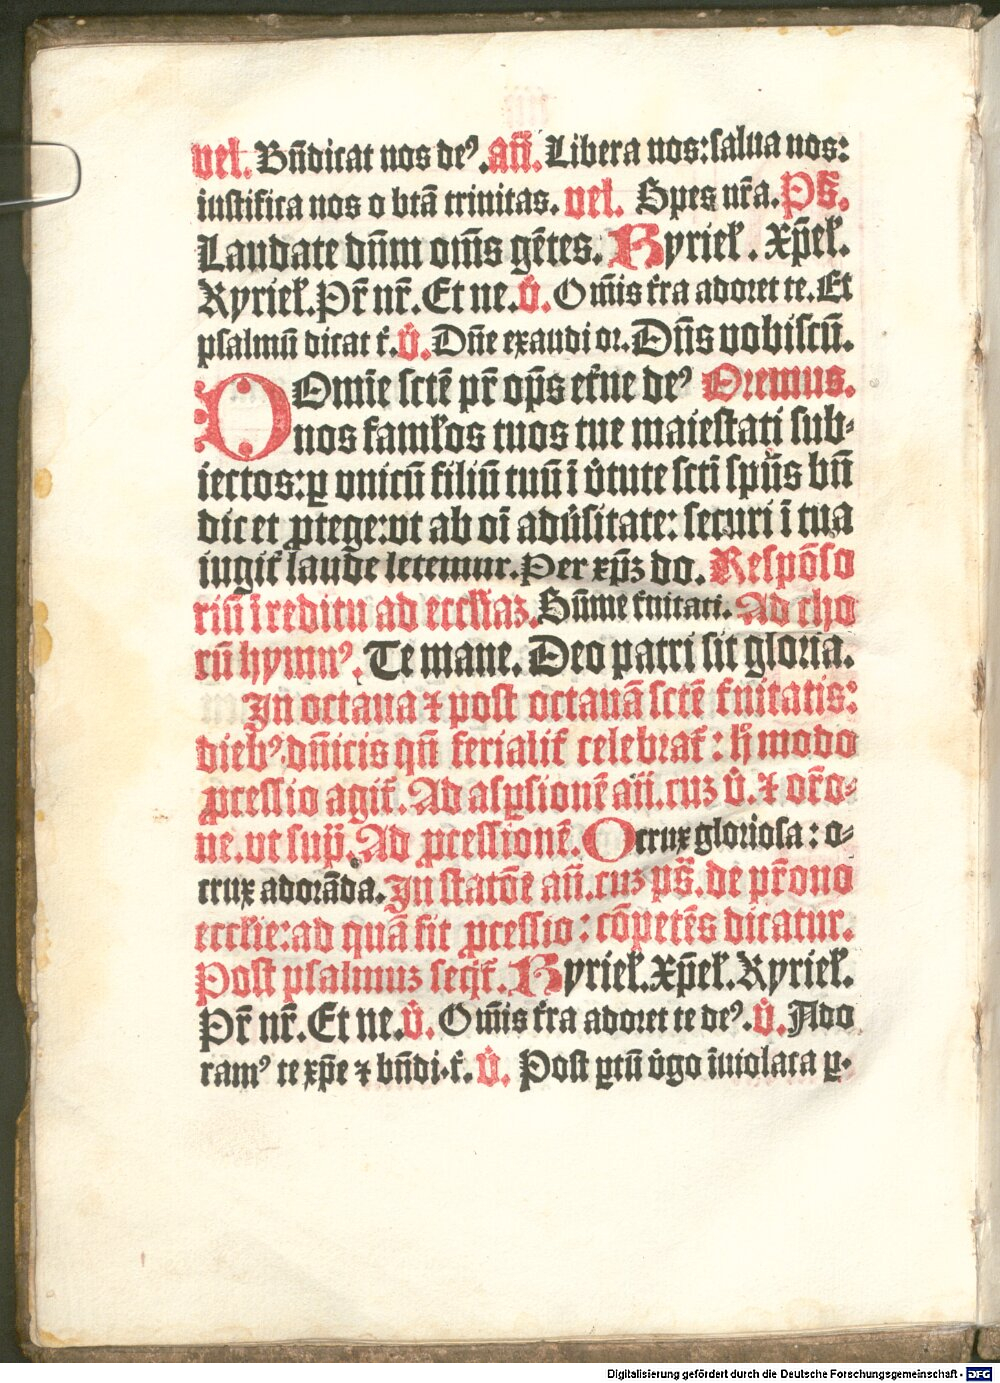 vel. Bn̄dicat nos deꝰ. an̄. Libera nos: salua nos:
iustifica nos o btā trinitas. vel. Spes nr̄a. Ps̄.
Laudate dn̄m om̄s gētes. Kyriel̕. Xp̄el̕.
Kyriel̕. Pr̄ nr̄. Et ne. v̓. Om̄is t̕ra adoret te. Et
psalmū dicat t̕. v̓. Dn̄e exaudi or. Dn̄s vobiscū.
Omīe sctē pr̄ op̄s et̕ne deꝰ Oremus.
O nos famłos tuos tue maiestati sub⸗
iectos: ꝑ vnicū filiū tuū ī v̓tute scti sp̄us bn̄
dic et ꝓtege: vt ab oī adu̓sitate: securi ī tua
iugit̕ laude letemur. Per xp̄ꝫ do. Respōso
riū ī reditu ad eccłiaꝫ. Sūme t̕nitati. Ad cho
rū hymnꝰ. Te mane. Deo patri sit gloria.
In octaua ⁊ post octauā sctē t̕nitatis:
diebꝰ dn̄icis qn̄ ferialit̕ celebrat̕: h̊ modo
ꝓcessio agit̕. Ad aspsionē an̄. cuꝫ v̓. ⁊ orō⸗
ne. vt sup̄. Ad ꝓcessionē. O crux gloriosa: o⸗
crux adorāda. In statōe an̄. cuꝫ ps̄. de pr̄ono
eccłie: ad quā fit ꝓcessio: cōpetēs dicatur.
Post psalmuꝫ seqt̕. Kyriel̕. Xp̄el̕. Kyriel̕.
Pr̄ nr̄. Et ne. v̓. Om̄is t̕ra adoret te deꝰ. v̓. Ado
ramꝰ te xp̄e ⁊ bn̄di. t̕. v̓. Post ꝑtū v̓go īuiolata ꝑ.
Digitalisierung gefördert durch die Deutsche Forschungsgemeinschaft - DFG